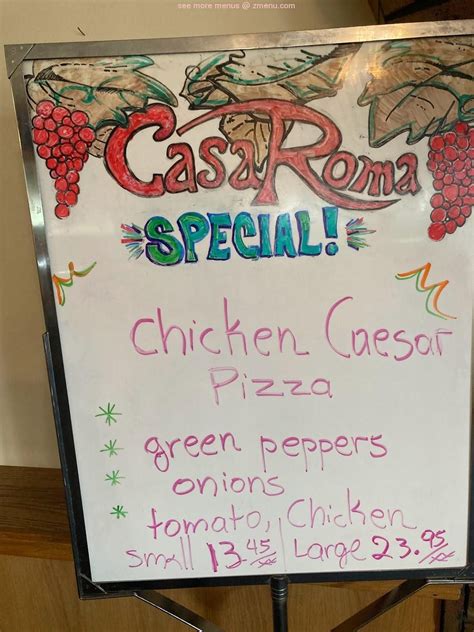 see more menus @ zmenu.com
Casa Roma
SPECIAL!
Chicken Caesar
Pizza
* green peppers
* onions
* tomato, Chicken
Small 13.45 | Large 23.95